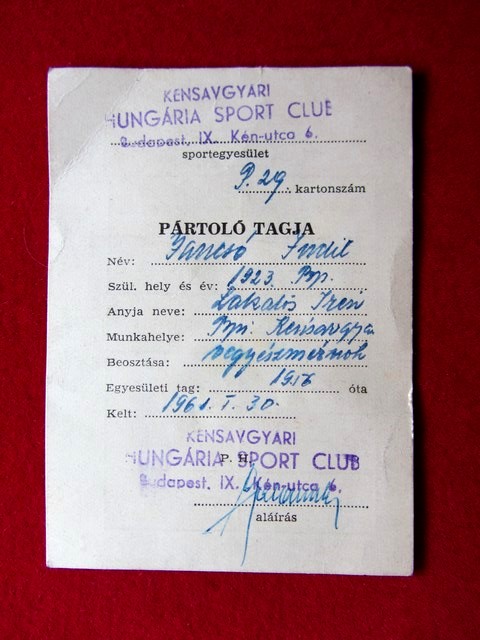 KÉNSAVGYÁRI
HUNGÁRIA SPORT CLUB
Budapest, IX. Kén-utca 6.
sportegyesület
P. 29. kartonszám
PÁRTOLÓ TAGJA
Név: Jancsó
Szül. hely és év: 1923. Bp.
Anyja neve: Lakatos Irén
Munkahelye: Bpi. Kénsavgyár
Beosztása: vegyészmérnök
Egyesületi tag: 1956 óta
Kelt: 1961. I. 30.
KÉNSAVGYÁRI
HUNGÁRIA SPORT CLUB
P. H.
Budapest, IX. Kén-utca 6.
aláírás